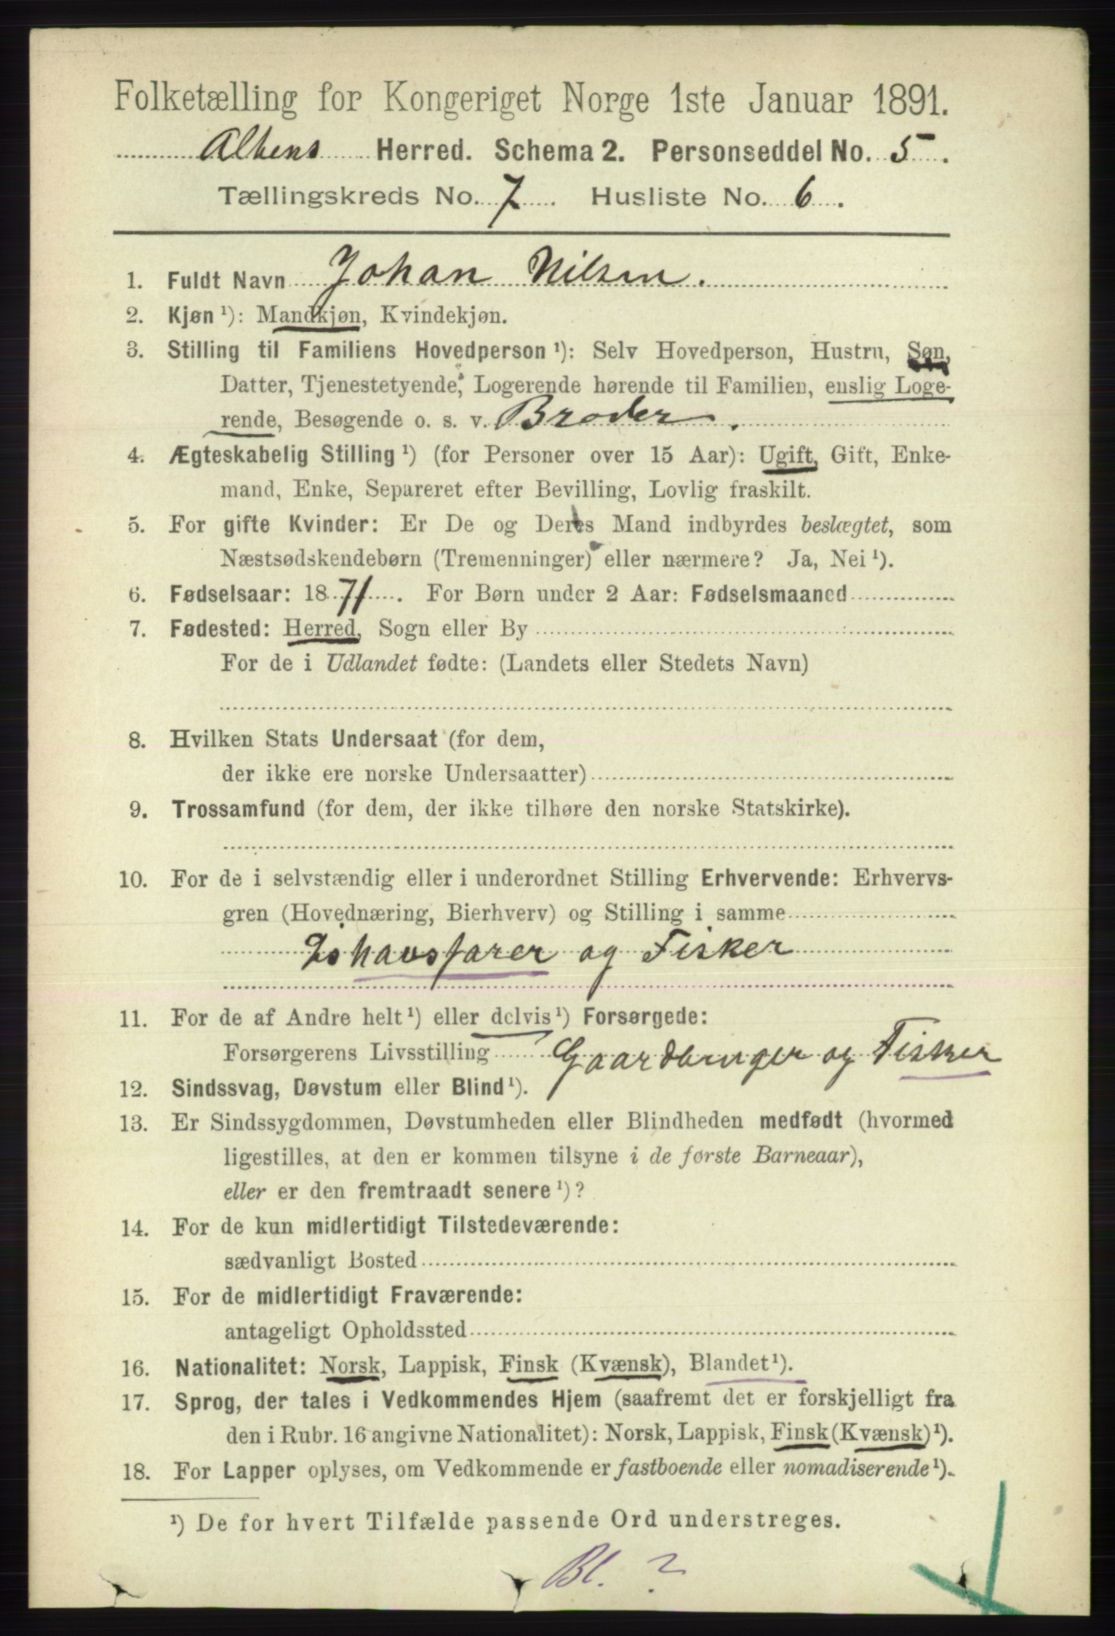 Folketælling for Kongeriget Norge 1ste Januar 1891.
Altens Herred. Schema 2. Personseddel No. 5.
Tællingskreds No. 7. Husliste No. 6.
1. Fuldt Navn Johan Nilsen.
2. Kjøn ¹): Mandkjøn, Kvindekjøn.
3. Stilling til Familiens Hovedperson ¹): Selv Hovedperson, Hustru, Søn,
Datter, Tjenestetyende, Logerende hørende til Familien, enslig Loge-
rende, Besøgende o. s. v. Broder.
4. Ægteskabelig Stilling ¹) (for Personer over 15 Aar): Ugift, Gift, Enke-
mand, Enke, Separeret efter Bevilling, Lovlig fraskilt.
5. For gifte Kvinder: Er De og Deres Mand indbyrdes beslægtet, som
Næstsødskendebørn (Tremenninger) eller nærmere? Ja, Nei ¹).
6. Fødselsaar: 1871. For Børn under 2 Aar: Fødselsmaaned
7. Fødested: Herred, Sogn eller By
For de i Udlandet fødte: (Landets eller Stedets Navn)
8. Hvilken Stats Undersaat (for dem,
der ikke ere norske Undersaatter)
9. Trossamfund (for dem, der ikke tilhøre den norske Statskirke).
10. For de i selvstændig eller i underordnet Stilling Erhvervende: Erhvervs-
gren (Hovednæring, Bierhverv) og Stilling i samme
Ishavsfarer og Fisker
11. For de af Andre helt ¹) eller delvis ¹) Forsørgede:
Forsørgerens Livsstilling Gaardbruger og Fisker
12. Sindssvag, Døvstum eller Blind ¹).
13. Er Sindssygdommen, Døvstumheden eller Blindheden medfødt (hvormed
ligestilles, at den er kommen tilsyne i de første Barneaar),
eller er den fremtraadt senere ¹)?
14. For de kun midlertidigt Tilstedeværende:
sædvanligt Bosted
15. For de midlertidigt Fraværende:
antageligt Opholdssted
16. Nationalitet: Norsk, Lappisk, Finsk (Kvænsk), Blandet ¹).
17. Sprog, der tales i Vedkommendes Hjem (saafremt det er forskjelligt fra
den i Rubr. 16 angivne Nationalitet): Norsk, Lappisk, Finsk (Kvænsk) ¹).
18. For Lapper oplyses, om Vedkommende er fastboende eller nomadiserende ¹).
¹) De for hvert Tilfælde passende Ord understreges.
Bl. ?